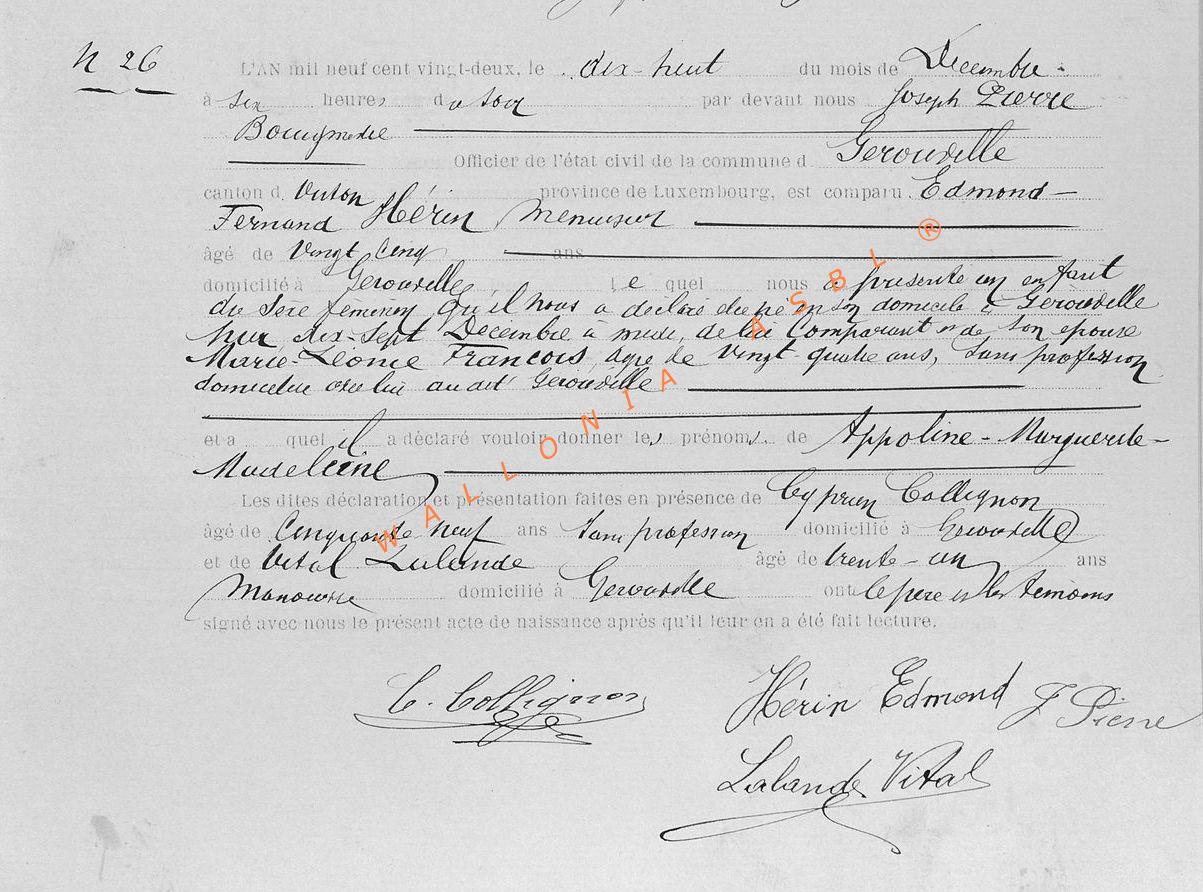 N 26
L'AN mil neuf cent vingt-deux, le dix-huit du mois de Decembre
à six heures du soir par devant nous Joseph Pierre
Bourgmestre
Officier de l'état civil de la commune d Gerouville
canton d Virton province de Luxembourg, est comparu Edmond-
Fernand Hérin Menuisier
âgé de Vingt Cinq ans
domicilié à Gerouville Le quel nous a présenté un enfant
du Sexe féminin, qu'il nous a déclaré être né en son domicile à Gerouville
hier dix-sept Decembre à midi, de lui Comparant et de Son epouse
Marie-Leonie Francois, agée de Vingt quatre ans, Sans profession
domiciliée chez lui audit Gerouville
et a quel il a déclaré vouloir donner les prénoms de Appoline-Marguerite-
Madeleine
Les dites déclaration et présentation faites en présence de Cyprien Collignon
âgé de Cinquante neuf ans Sans profession domicilié à Gerouville
et de Vital Lalande âgé de trente-un ans
Manoeuvre domicilié à Gerouville ont le père et les témoins
signé avec nous le présent acte de naissance après qu'il leur en a été fait lecture.
C. Collignon
Hérin Edmond J Pierre
Lalande Vital
WALLONIA ASBL ®